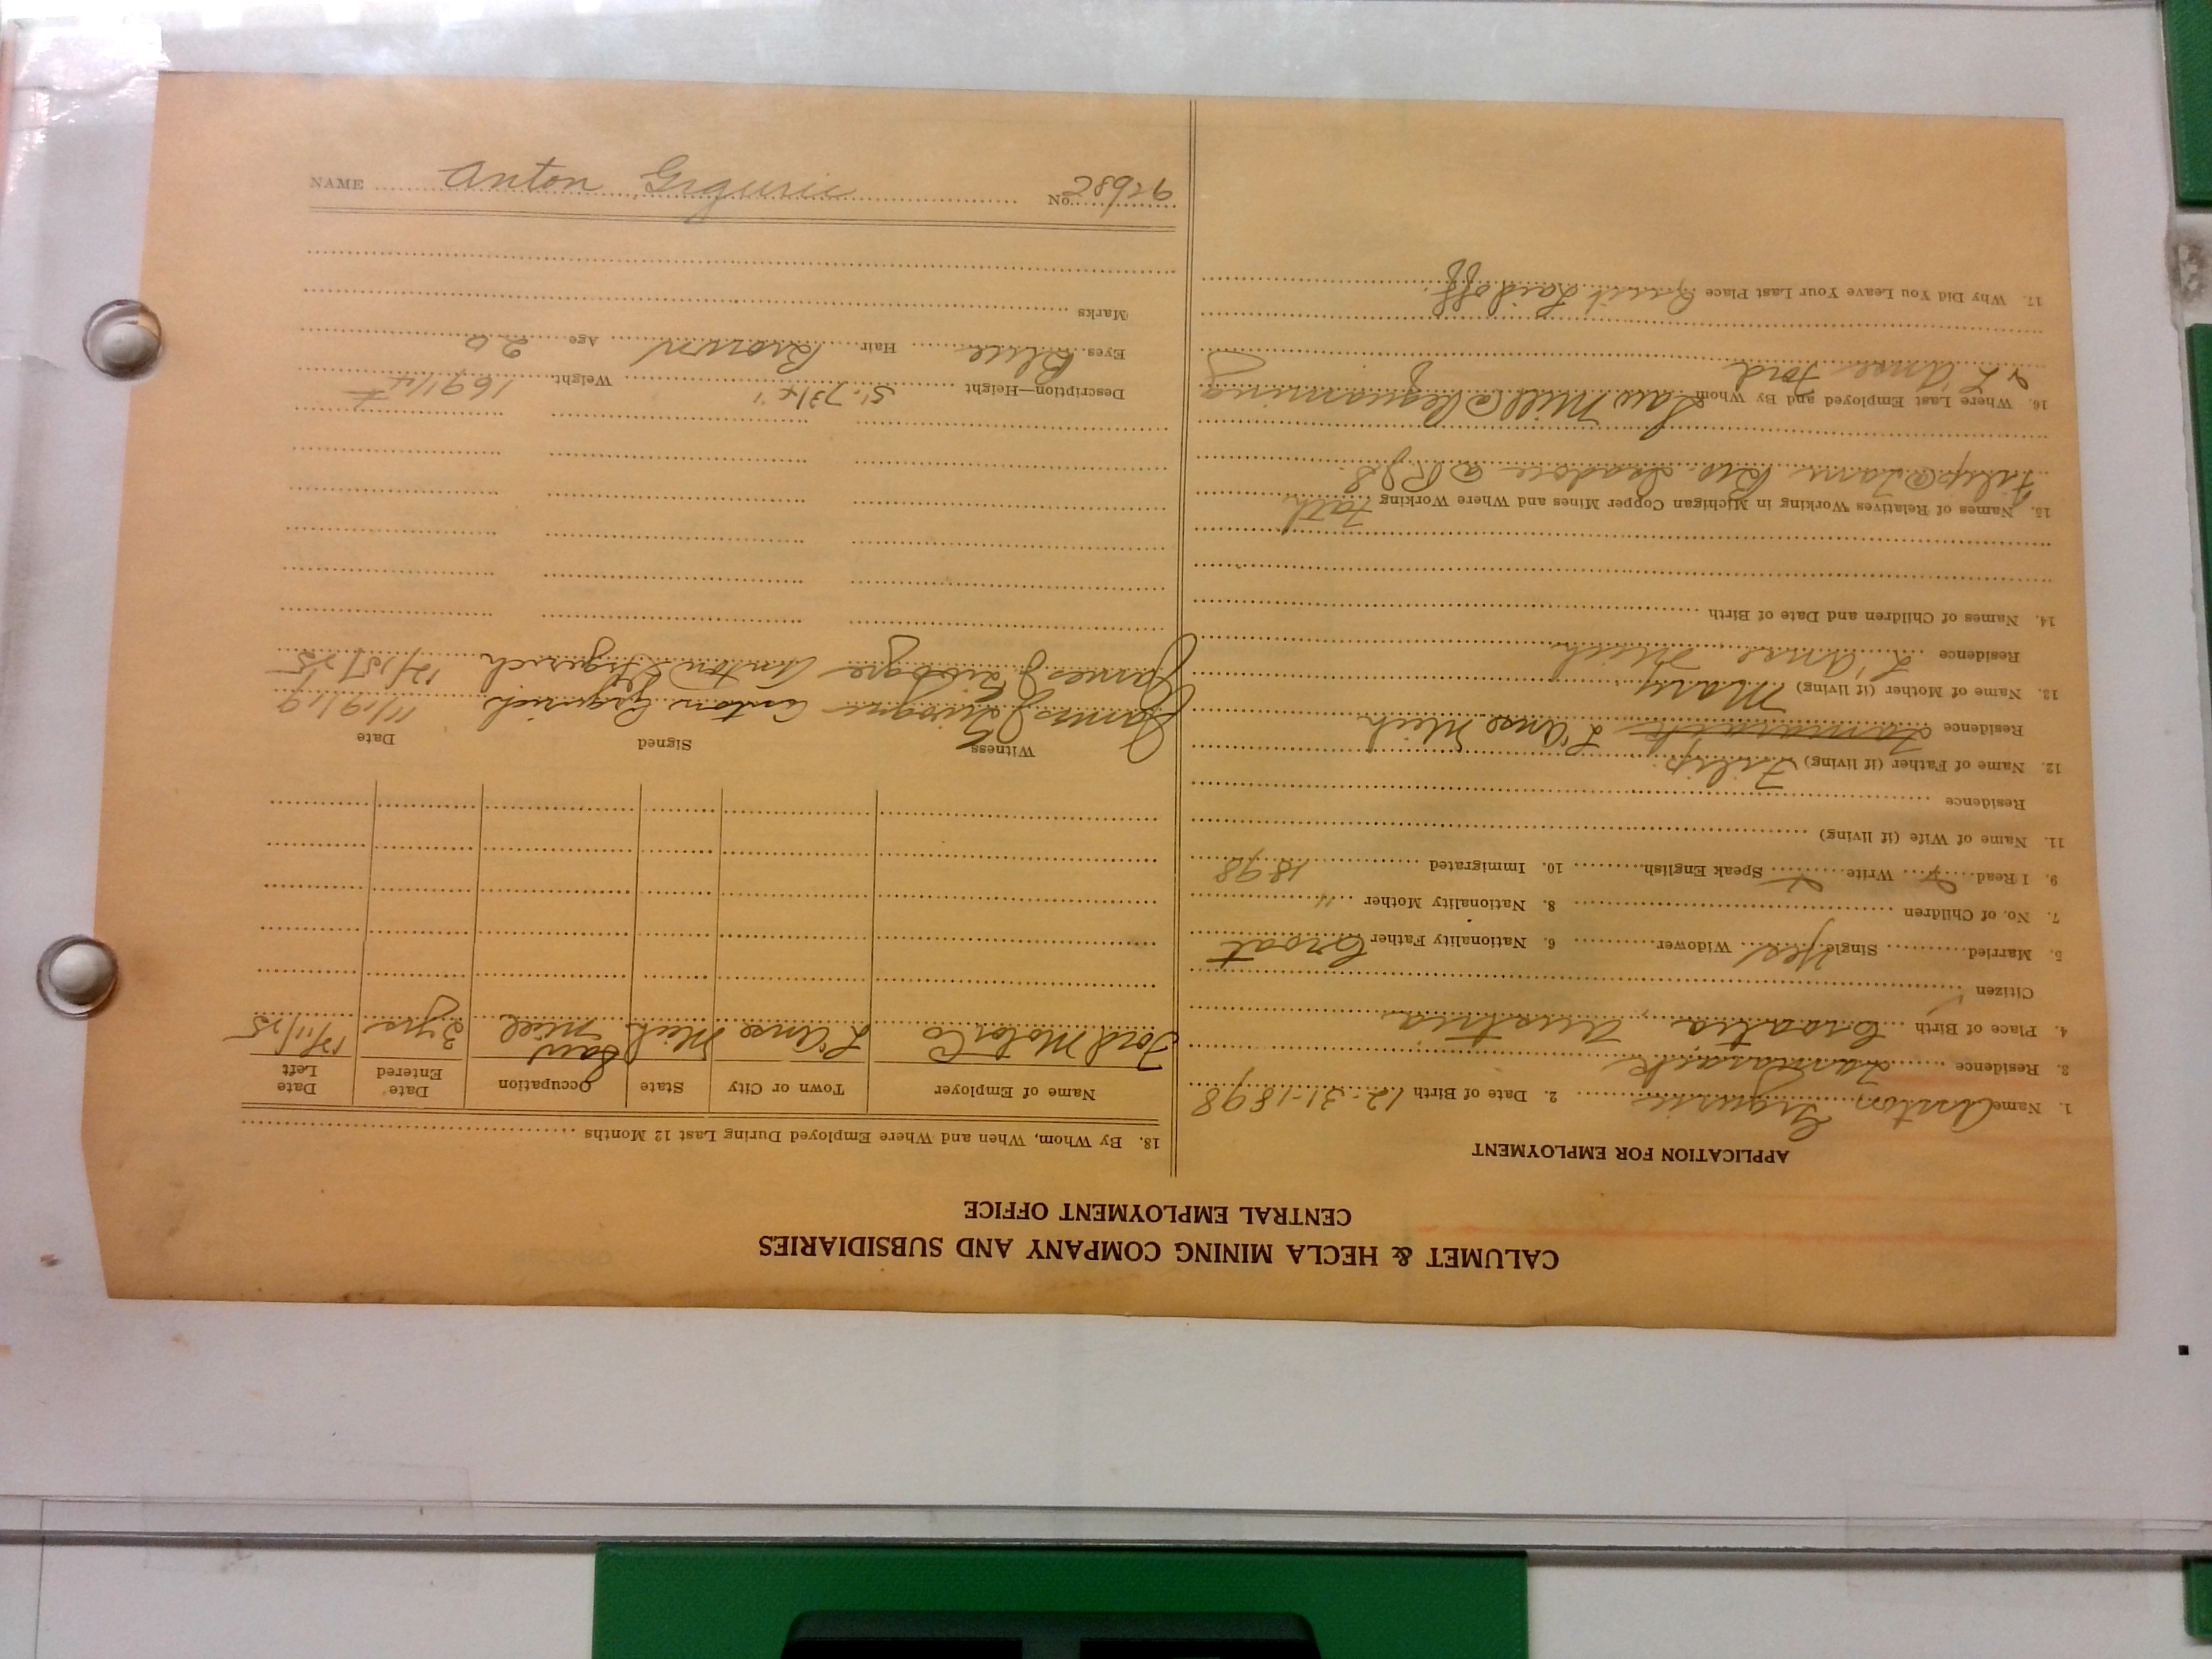 CALUMET & HECLA MINING COMPANY AND SUBSIDIARIES
CENTRAL EMPLOYMENT OFFICE
APPLICATION FOR EMPLOYMENT
1. Name Anton Grguric 2. Date of Birth 12-31-1898
3. Residence Tamarack
4. Place of Birth Croatia Austria
Citizen
5. Married Single Yes Widower 6. Nationality Father Croat
7. No. of Children 8. Nationality Mother "
9. I Read Write Speak English 10. Immigrated 1898
11. Name of Wife (if living)
Residence
12. Name of Father (if living) Filip
Residence Tamarack L'Anse Mich
13. Name of Mother (if living) Mary
Residence L'Anse Mich
14. Names of Children and Date of Birth
15. Names of Relatives Working in Michigan Copper Mines and Where Working Fath
Filip @ Tam Bro. @
16. Where Last Employed and By Whom Saw Mill @ Pequaming
L'Anse Ford
17. Why Did You Leave Your Last Place Quit Laid off.
18. By Whom, When, and Where Employed During Last 12 Months
Name of Employer Town or City State Occupation Date Entered Date Left
Ford Motor Co L'Anse Mich Saw Mill 3 yrs 12/11/25
Witness Signed Date
James Anton Grgurich 11/19/19
James Anton Grgurich 12/15/25
Description—Height 5'-7 3/4" Weight 169 1/4 #
Eyes Blue Hair Brown Age 20
Marks
NAME Anton Grguric No. 28926